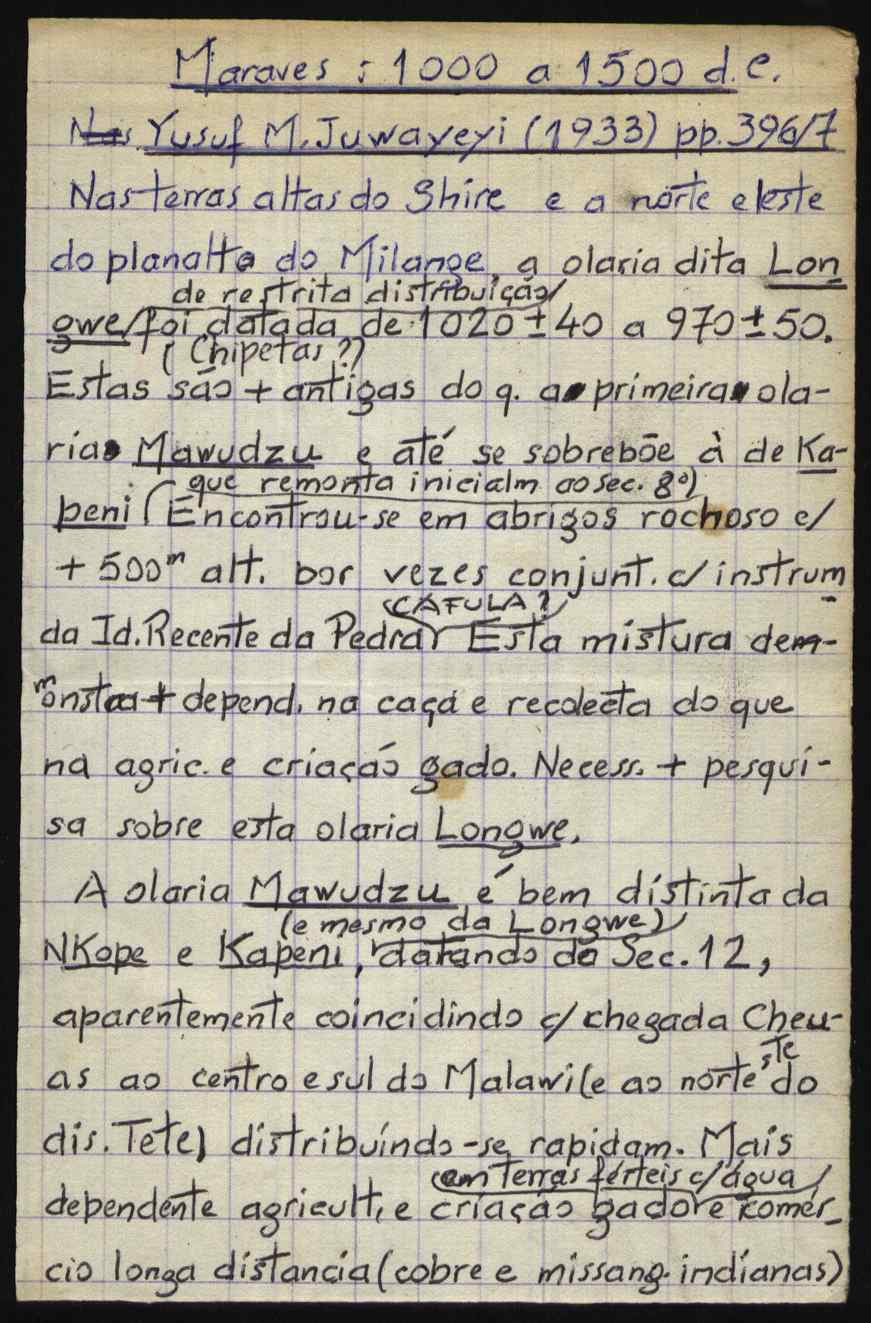 Maraves : 1000 a 1500 d.C.
Nas Yusuf M. Juwayeyi (1933) pp. 396/7
Nas terras altas do Shire e a norte e leste
do planalto do Milange, a olaria dita Lon
de restrita distribuição/
gwe/foi datada de 1020 ± 40 a 970 ± 50.
(Chipetas?)
Estas são + antigas do q. a primeira ola-
ria Mawudzu e até se sobrepõe à de Ka-
que remonta inicialm ao sec. 8º)
peni (Encontrou-se em abrigos rochoso c/
+ 500m alt. por vezes conjunt. c/ instrum
(CAFULA?)
da Id. Recente da Pedra) Esta mistura dem-
+ depend. na caça e recolecta do que
na agric. e criação gado. Necess. + pesqui-
sa sobre esta olaria Longwe.
A olaria Mawudzu é bem distinta da
(e mesmo da Longwe)
NKope e Kapeni, datando do Sec. 12,
aparentemente coincidindo c/ chegada Cheu-
as ao centro e sul do Malawi (e ao norte, do
ste
dis. Tete) distribuíndo-se rapidam. Mais
(em terras férteis c/ água)
dependente agricult, e criação gado e comér-
cio longa distancia (cobre e missang. indianas)